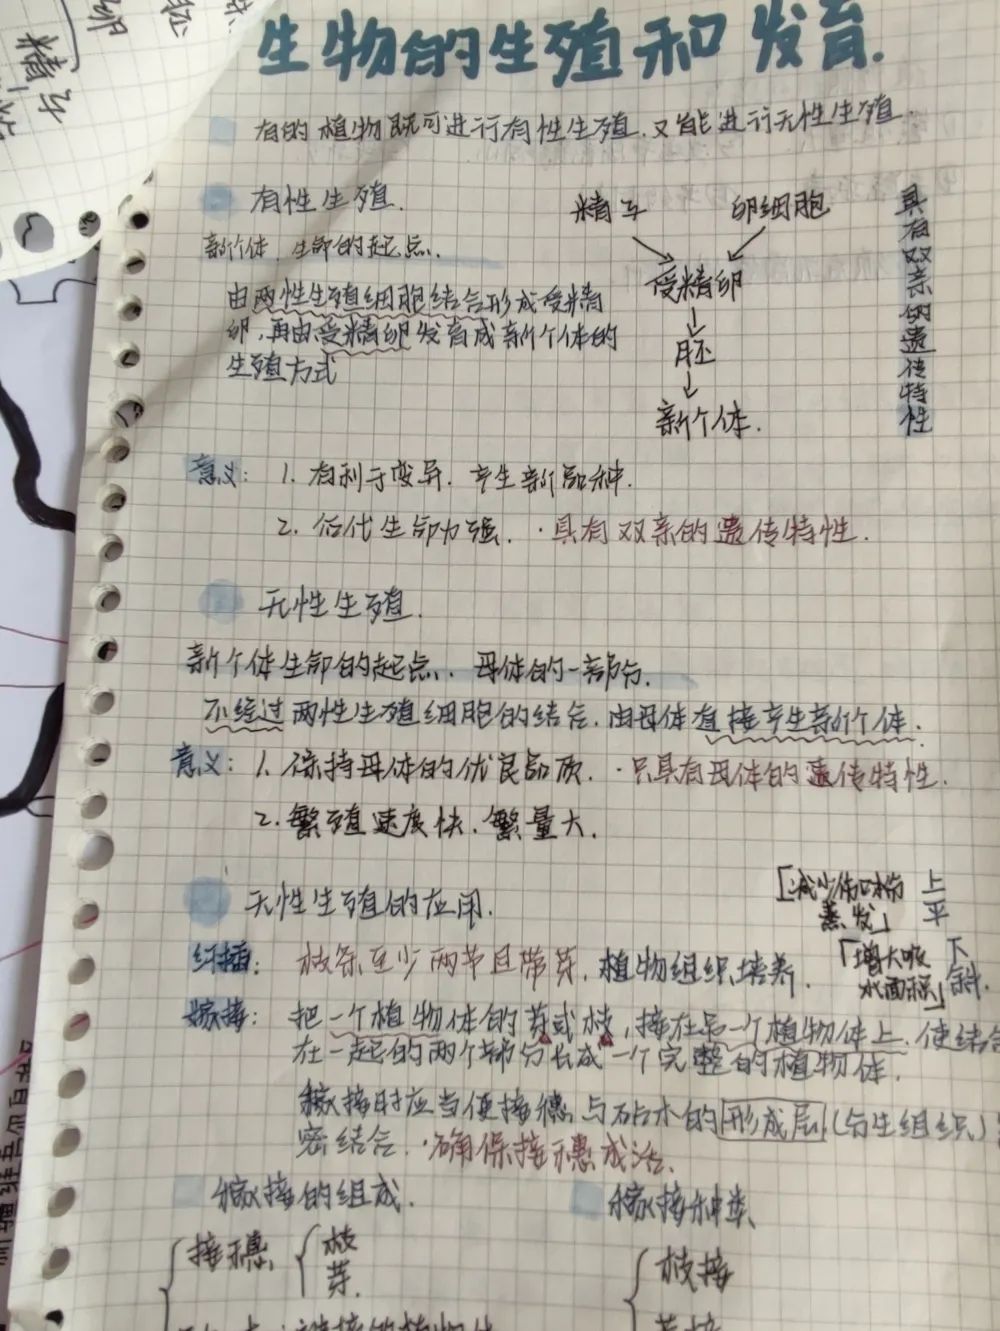 生物的生殖和发育.
有的植物既可进行有性生殖.又能进行无性生殖.
有性生殖.
新个体.生命的起点.
由两性生殖细胞结合形成受精
卵,再由受精卵发育成新个体的
生殖方式
精子 卵细胞
受精卵
胚
新个体.
具有双亲的遗传特性
意义: 1. 有利于变异.产生新品种.
2. 后代生命力强. ·具有双亲的遗传特性.
无性生殖.
新个体生命的起点. 母体的一部分.
不经过两性生殖细胞的结合.由母体直接产生新个体.
意义: 1. 保持母体的优良品质. ·只具有母体的遗传特性.
2. 繁殖速度快.繁量大.
无性生殖的应用.
「减少伤口水份 上
蒸发」 平
「增大吸 下
水面积」 斜.
扦插: 枝条至少两节且带芽.植物组织培养.
嫁接: 把一个植物体的芽或枝,接在另一个植物体上,使结合
在一起的两个部分长成一个完整的植物体.
嫁接时应当使接穗与砧木的形成层(分生组织)
密结合.·确保接穗成活.
嫁接的组成. 嫁接种类
接穗 枝
芽.
枝接
芽接